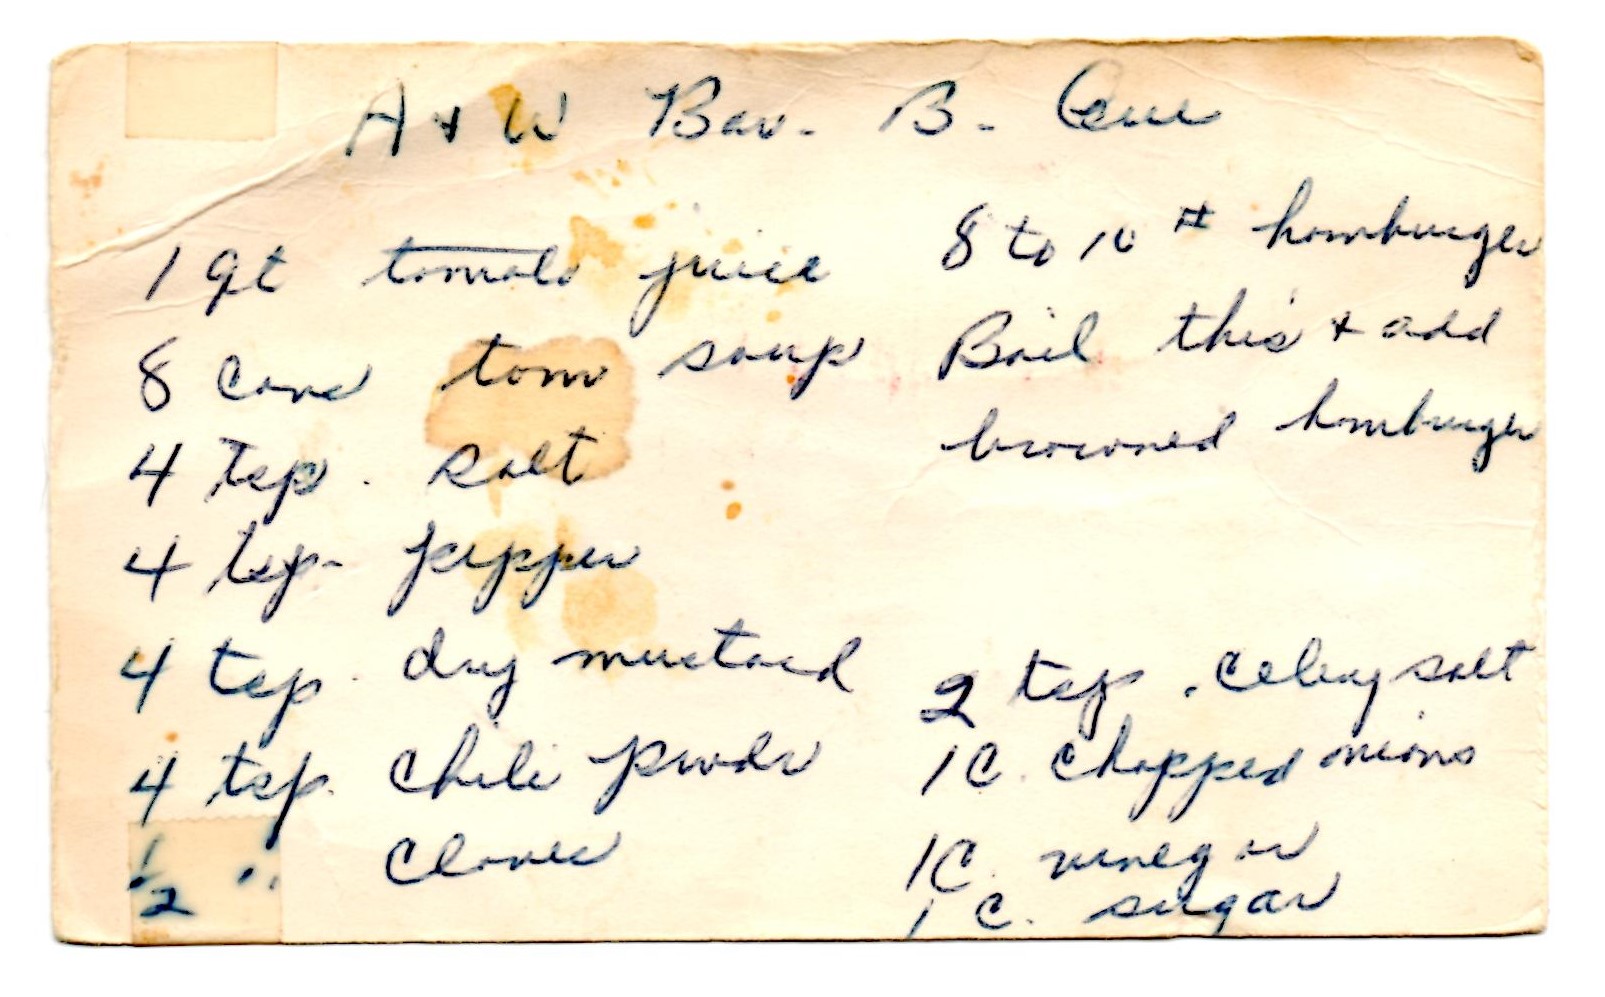 A + W Bar. B. Que
1 qt tomato juice
8 cans tom soup
4 tsp. salt
4 tsp. pepper
4 tsp. dry mustard
4 tsp. chili powdr
1/2 " cloves
8 to 10 # hamburger
Boil this + add
browned hamburger
2 tsp. celery salt
1 C. chopped onions
1 C. vinegar
1 C. sugar